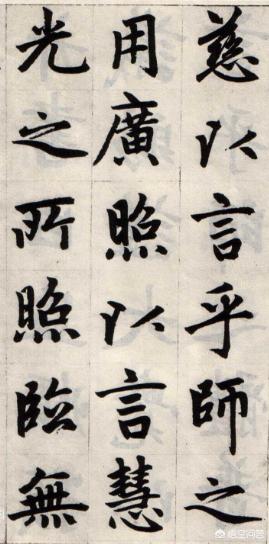 慈以言乎師之
用廣照以言慧
光之所照臨無
悟空问答